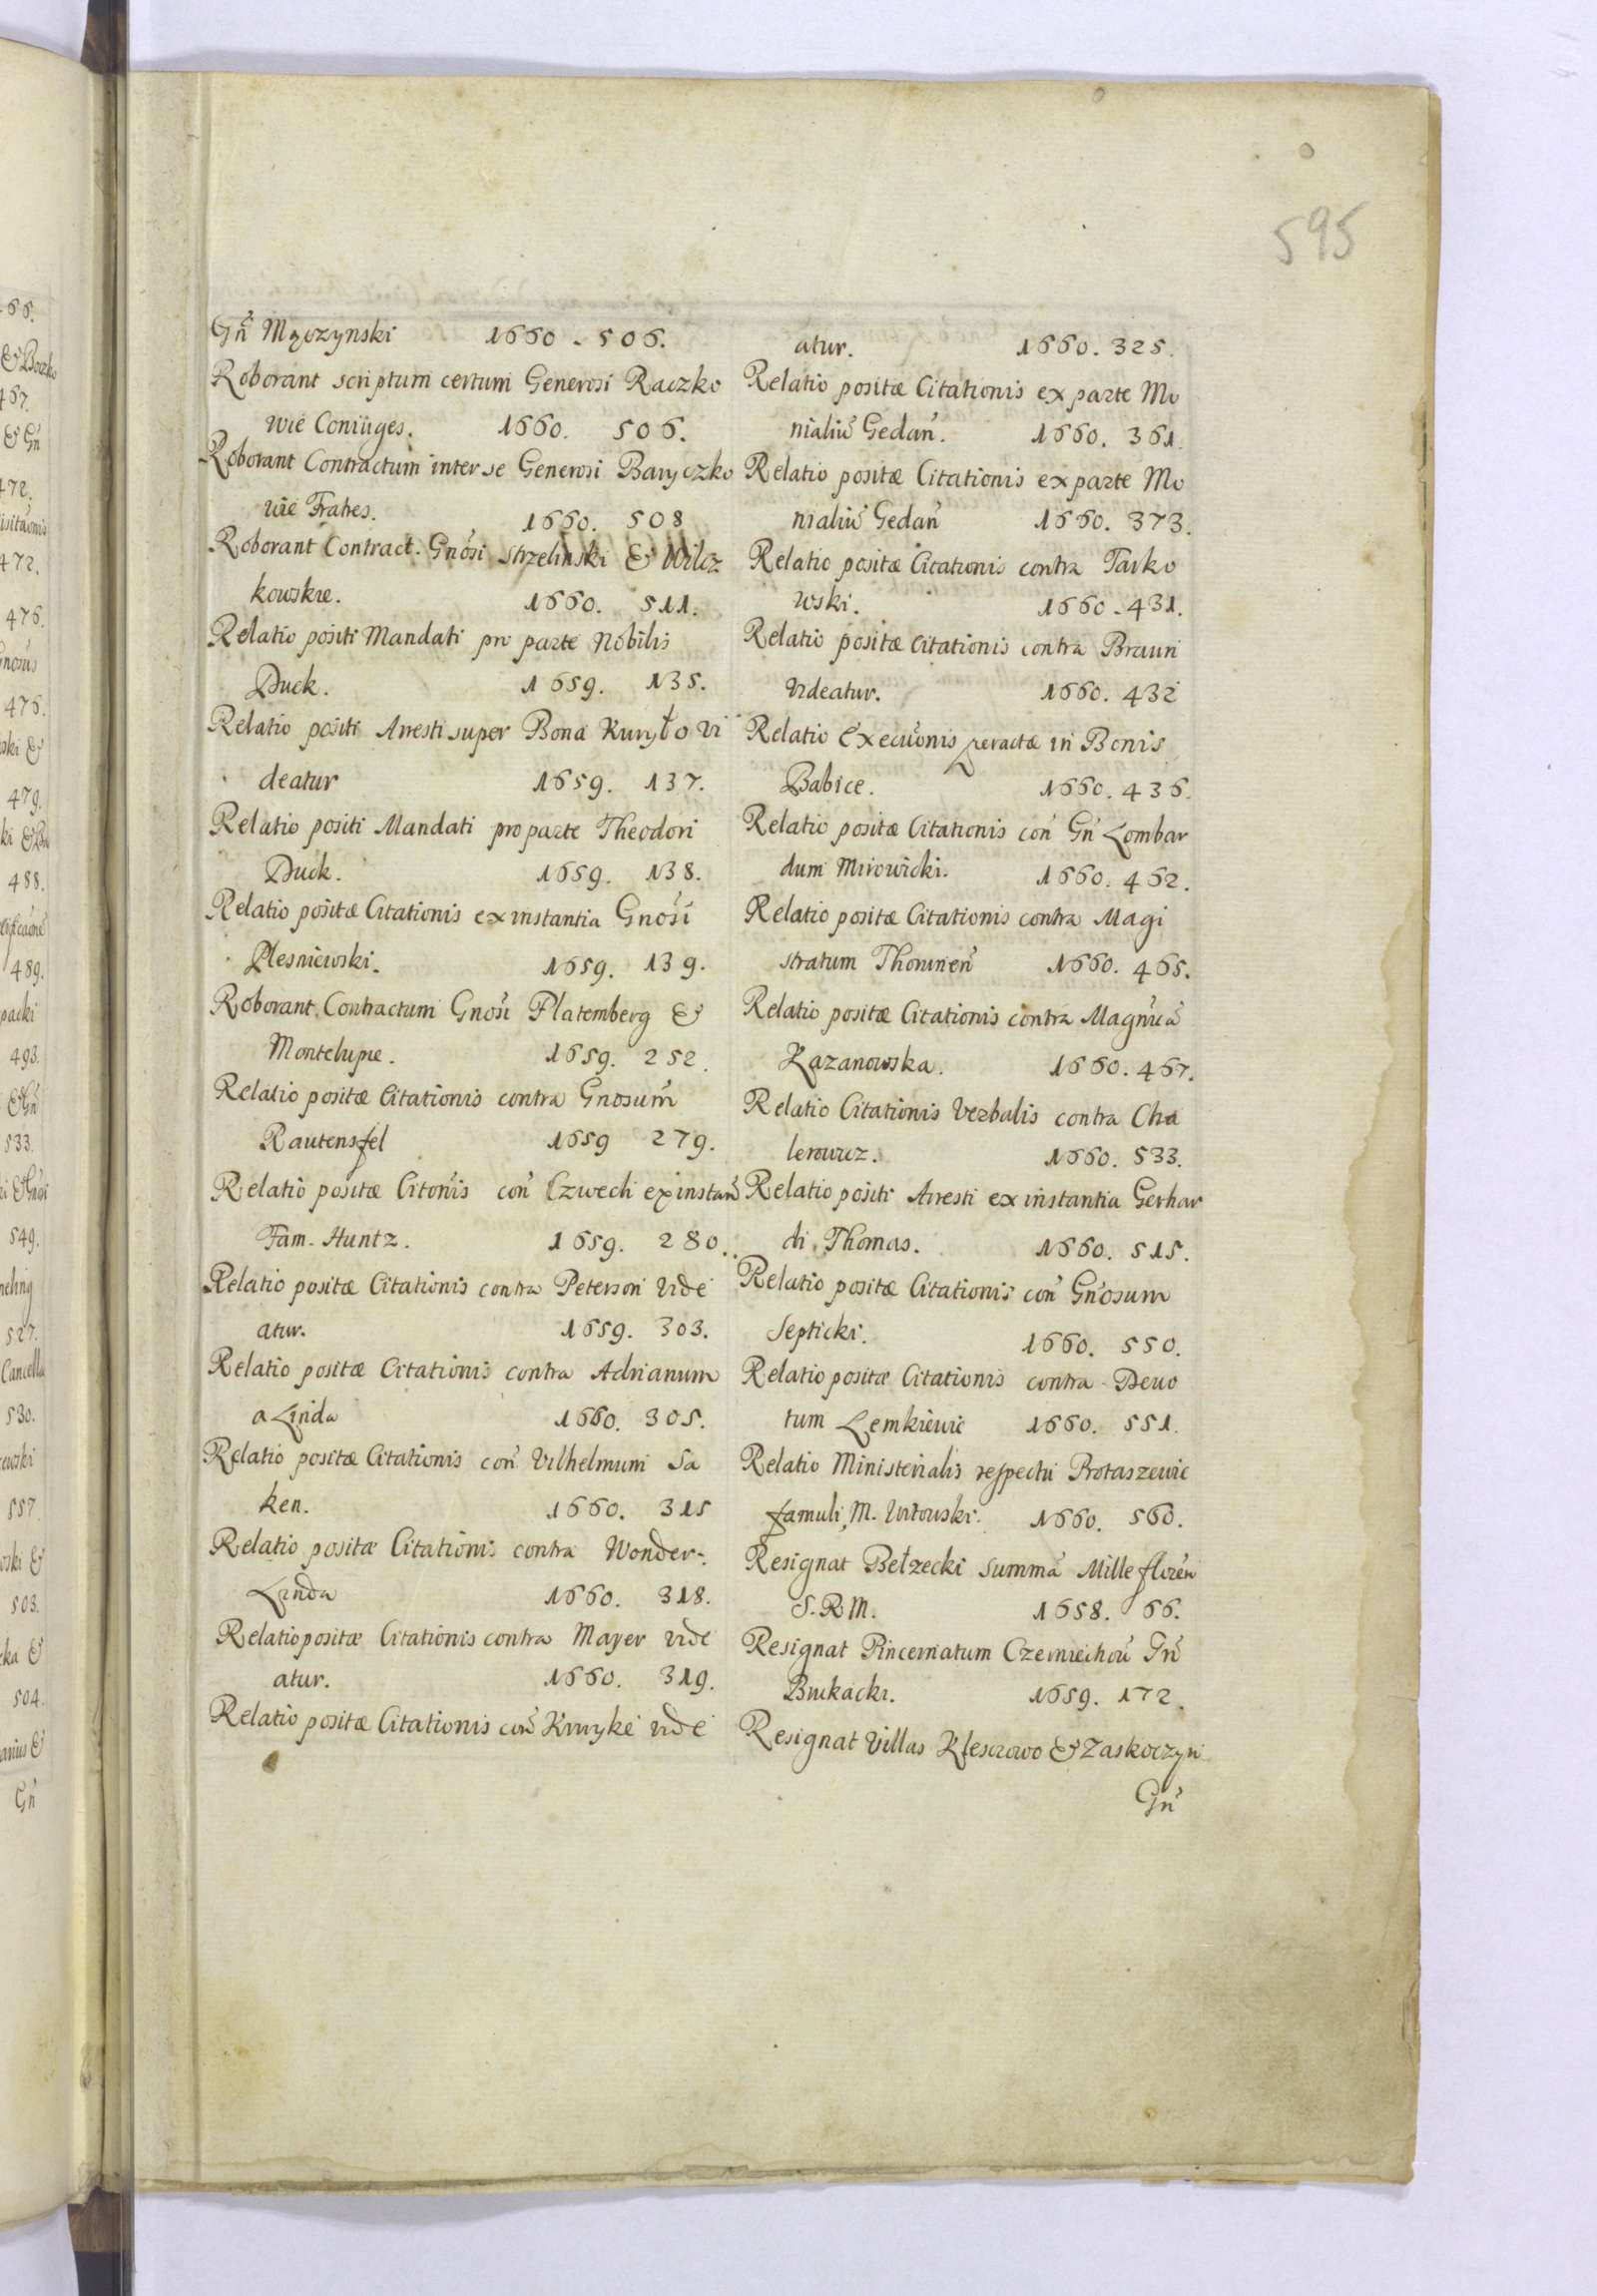 595
Gn̄ Mączynski 1660 - 506.
Roborant scriptum certum Generosi Raczko
wie Coniuges. 1660. 506.
Roborant Contractum inter se Generosi Baryczko
wie Fratres. 1660. 508
Roborant Contract. Gnosi Strzelinski & Wilcz
kowskie. 1660. 511.
Relatio positi Mandati pro parte Nobilis
Duck. 1659. 135.
Relatio positi Arresti super Bona Kuryło Vi
deatur 1659. 137.
Relatio positi Mandati pro parte Theodori
Duck. 1659. 138.
Relatio positæ Citationis ex instantia Gnosi
Plesniewski. 1659. 139.
Roborant Contractum Gnosi Platemberg &
Montelupie. 1659. 252.
Relatio positæ Citationis contra Gnosum
Rautensfel 1659 279.
Relatio positæ Citonis con Czwech ex instan
Fam. Huntz. 1659. 280.
Relatio positæ Citationis contra Peterson Vide
atur. 1659. 303.
Relatio positæ Citationis contra Adrianum
a Linda 1660. 305.
Relatio positæ Citationis con Vilhelmum Sa
ken. 1660. 315
Relatio positæ Citationis contra Wonder-
Linda 1660. 318.
Relatio positæ Citationis contra Mayer vide
atur. 1660. 319.
Relatio positæ Citationis con vide
atur. 1660. 325.
Relatio positæ Citationis ex parte Mo
nialiu Gedan. 1660. 361.
Relatio positæ Citationis ex parte Mo
nialiu Gedan 1660. 373.
Relatio positæ Citationis contra Tarko
wski. 1660 - 431.
Relatio positæ Citationis contra Braun
Videatur. 1660. 432
Relatio Execuonis peractæ in Bonis
Babice. 1660. 436.
Relatio positæ Citationis con Gn Lombar
dum Mirowicki. 1660. 462.
Relatio positæ Citationis contra Magi
stratum Thorunen 1660. 465.
Relatio positæ Citationis contra Magnica
Kazanowska. 1660. 467.
Relatio Citationis Verbalis contra Cha
lerowicz. 1660. 533.
Relatio positi Arresti ex instantia Gerhar
di Thomas. 1660. 515.
Relatio positæ Citationis con Gnosum
Septicki. 1660. 550.
Relatio positæ Citationis contra Deuo
tum Lemkiewic 1660. 551.
Relatio Ministerialis respectu Protaszewic
famuli M. 1660. 560.
Resignat Bełzecki summa Mille floren
S. R M. 1658. 66.
Resignat Pincernatum Czerniechou Gn
Bukacki. 1659. 172.
Resignat Villas Klesczowo & Zaskoczyn
Gn